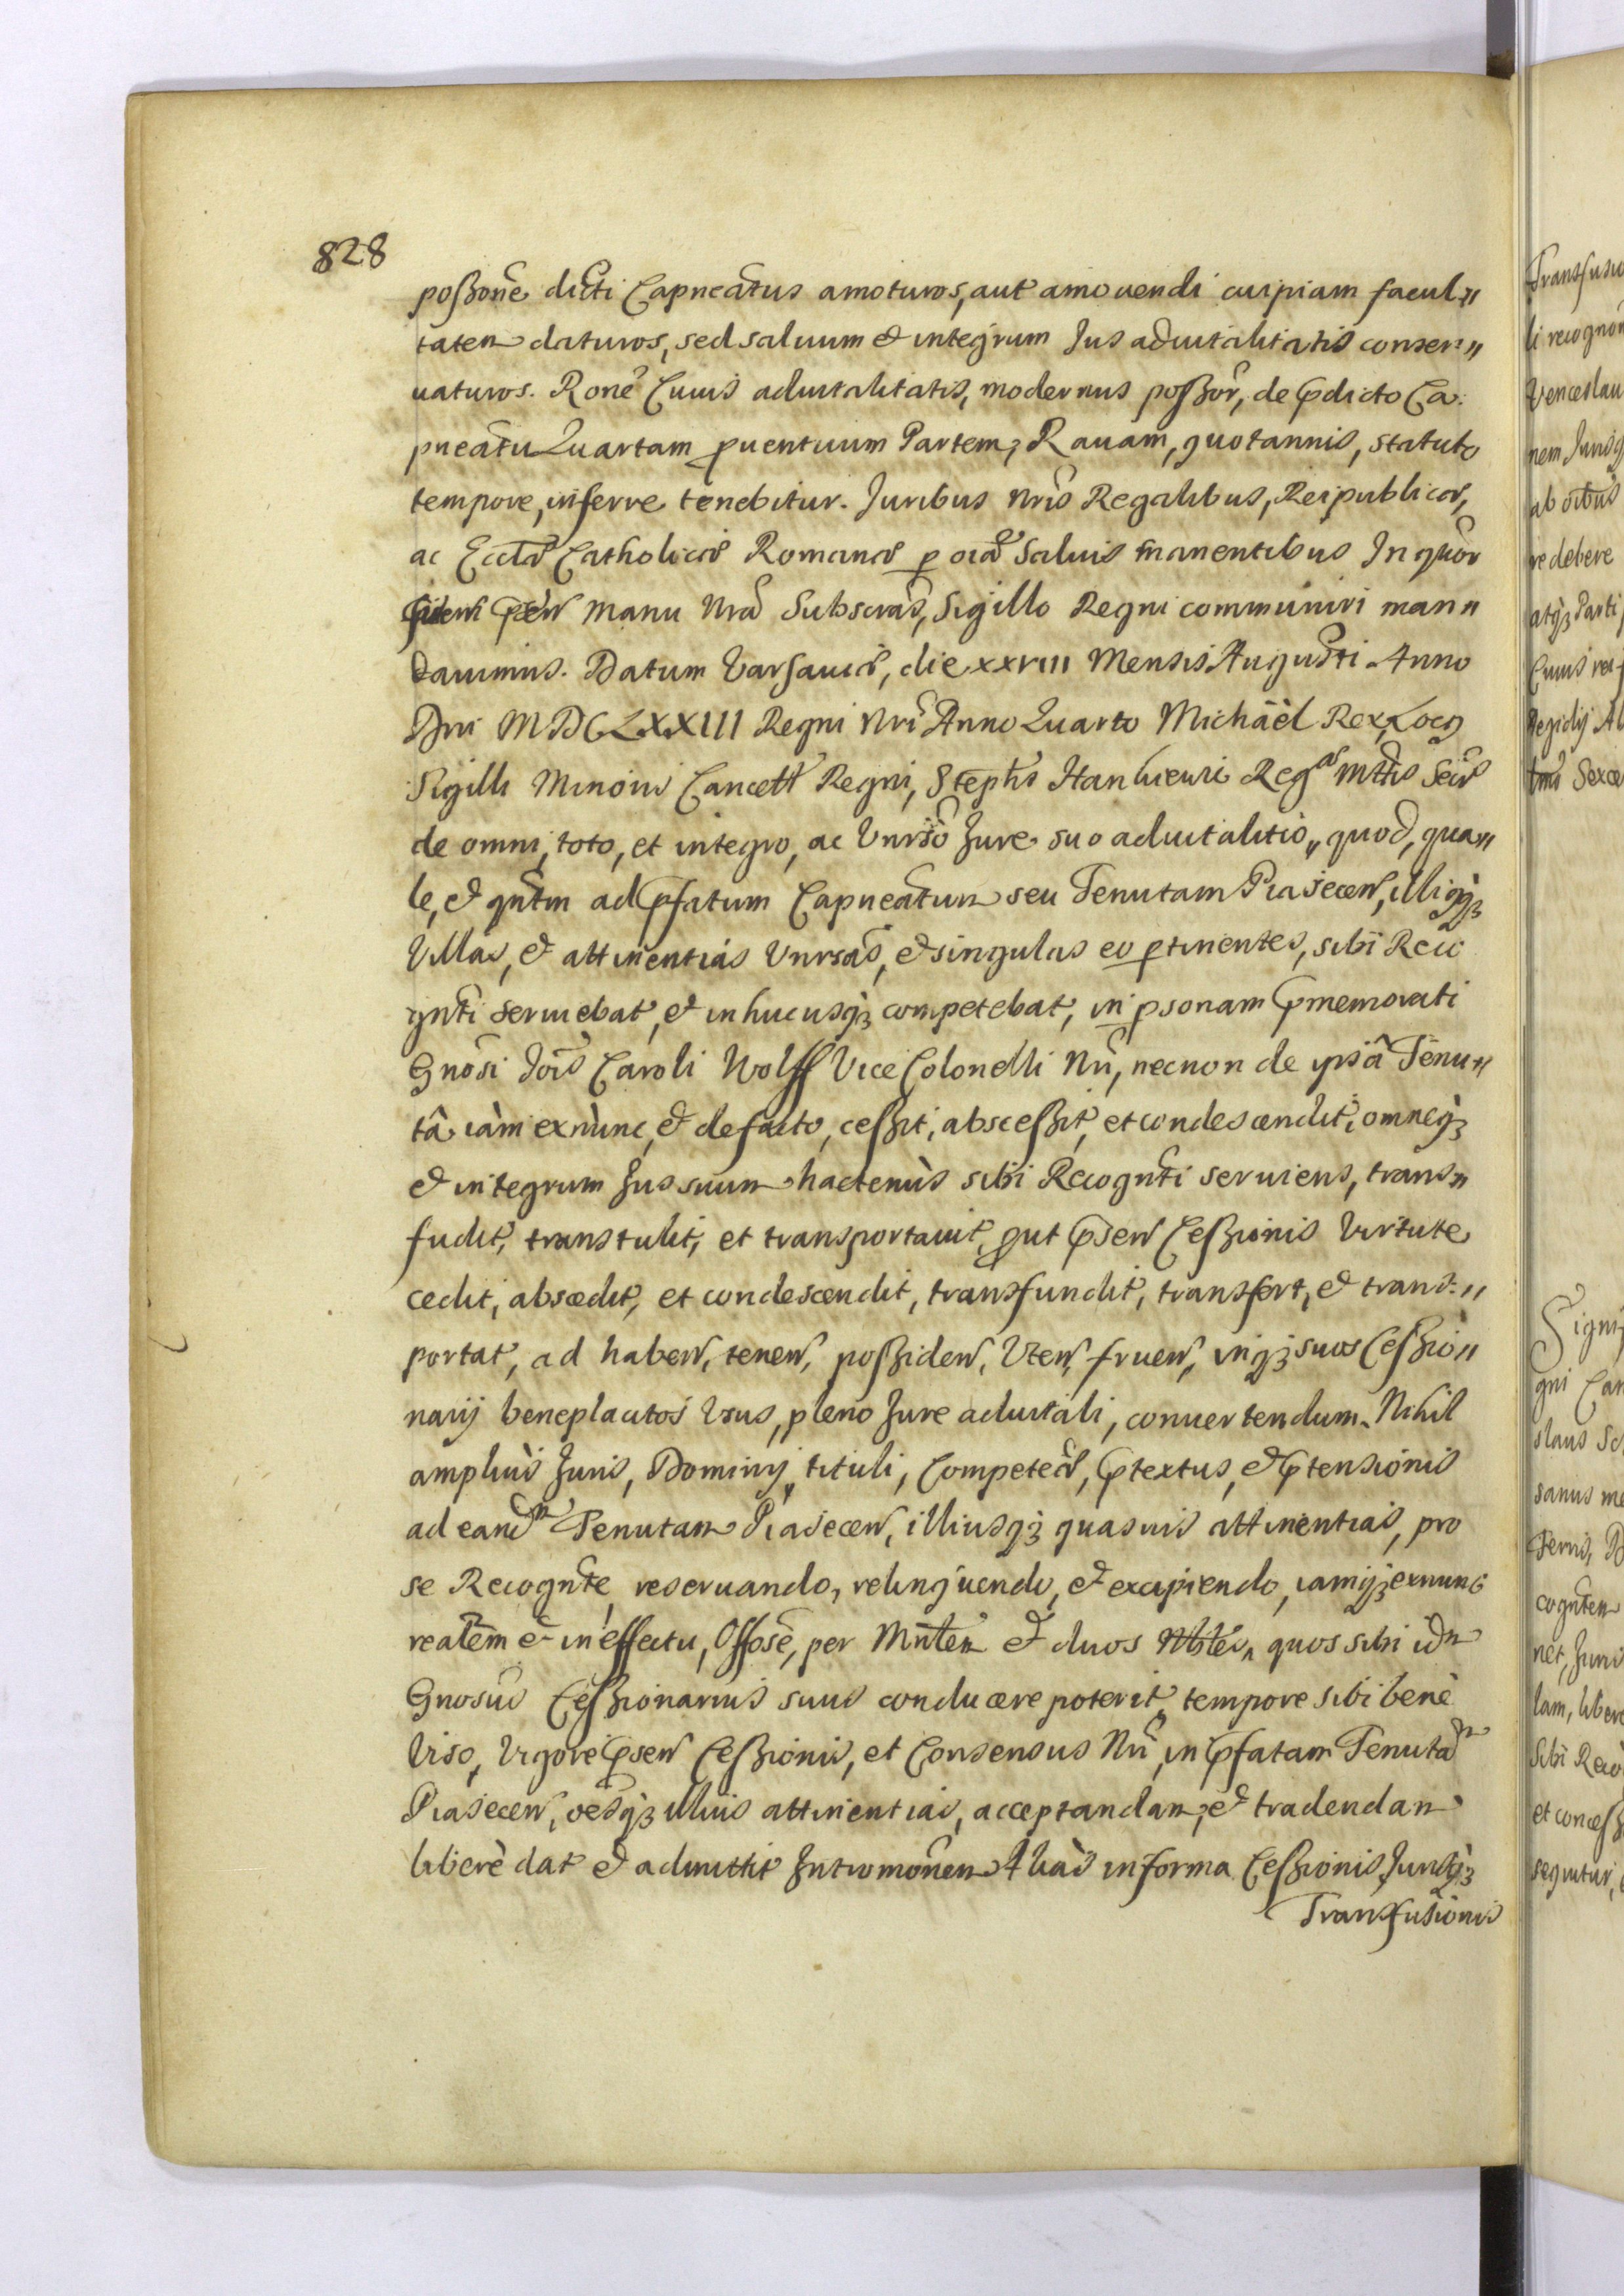 828
poßone dicti Capneatus amoturos, aut amouendi cuipiam facul„
tatem daturos, sed saluum et integrum Jus aduitalitatis conser„
uaturos. Rone Cuius aduitalitatis, modernus poßor, de pdicto Ca
pneatu Quartam puentuum Partem, Rauam, quotannis, statuto
tempore, inferre tenebitur. Juribus nris Regalibus, Reipublicæ,
ac Ecclæ Catholicæ Romanæ p oia Saluis manentibus In quor
fidem psen manu nra Subscras, Sigillo Regni communiri man„
dauimus. Datum Varsauiæ, die xxviii Mensis Augusti Anno
Dni MDCLXXIII Regni nri Anno Quarto Michaèl Rex, Locg
Sigilli Minoris Cancell Regni, Stephs Hankieuic Regæ Mttis Secr
de omni, toto, et integro, ac Vnrso Jure suo aduitalitio, quod, qua„
le, et qntm ad pfatum Capneatum seu Tenutam Piasecen, illiqz
Villas, et attinentias Vnrsas, et singulas eo ptinentes, sibi Reco
gnti seruiebat, et in hucusqz competebat, in psonam pmemorati
Gnosi Dni Caroli Wolff Vice Colonelli nri, necnon de ipsâ Tenu„
tâ iàm exnùnc, et defacto, ceßit, absceßit, et condescendit, omneqz
et integrum Jus suum hactenùs sibi Recognti seruiens, trans„
fudit, transtulit, et transportauit, put psen Ceßionis Virtute
cedit, abscedit, et condescendit, transfundit, transfert, et trans„
portat, ad haben, tenen, poßiden, Vten, fruen, inqz suos Ceßio„
narij beneplacitos Vsus, pleno Jure aduitali, conuertendum. Nihil
ampliùs Juris, Dominij, tituli, Competeæ, ptextus, et ptensionis
ad eandm Tenutam Piasecen, illiusqz quasuis attinentias, pro
se Recognte, reseruando, relinquendo, et excipiendo, iamqz exnunc
realem et in effectu, Offose, per Mnltem et duos Nbiles, quos sibi idm
Gnosus Ceßionarius suus conducere poterit, tempore sibi benè
Viso, Vigore psen Ceßionis, et Consensus nri, in pfatam Tenutam
Piasecen, oesqz illius attinentias, acceptandam, et tradendam
liberè dat et admittit Intromonem Aliàs in forma Ceßionis, Jurisqz
Transfusionis